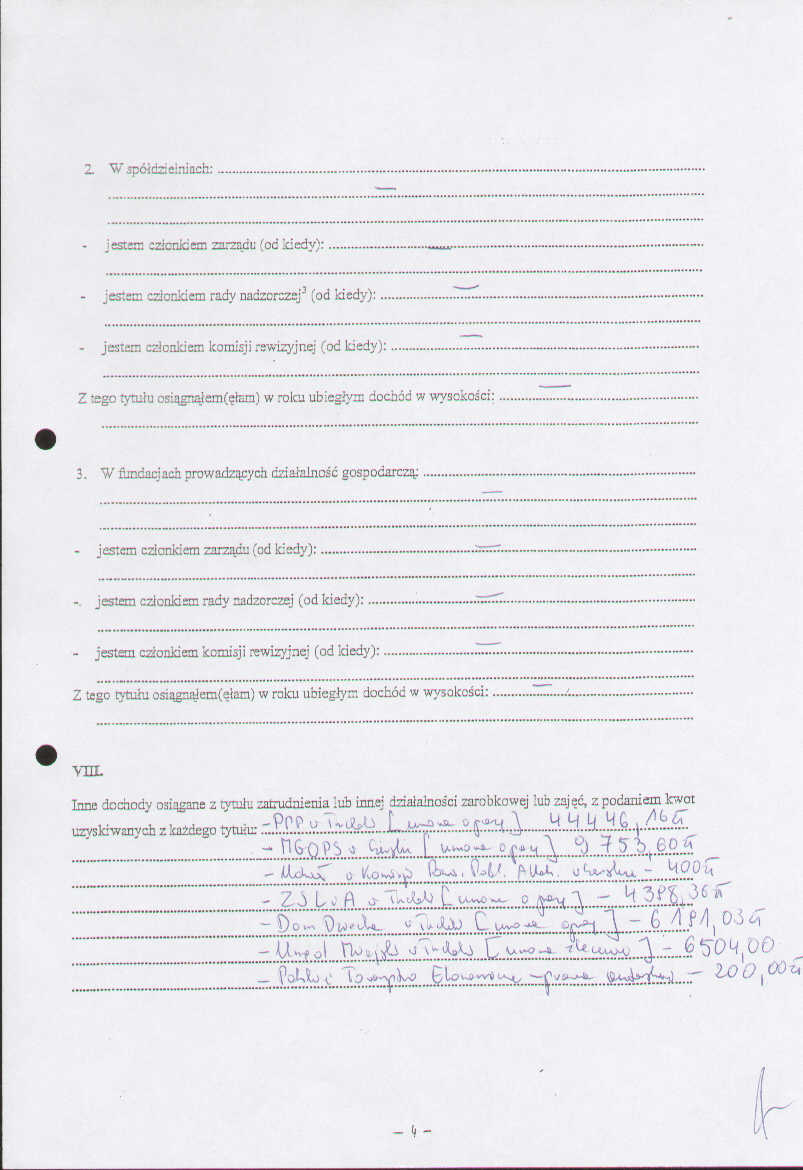 2. W spółdzielniach: ........
—
- jestem członkiem zarządu (od kiedy): ........ —
- jestem członkiem rady nadzorczej³ (od kiedy): ........ —
- jestem członkiem komisji rewizyjnej (od kiedy): ........ —
Z tego tytułu osiągnąłem(ęłam) w roku ubiegłym dochód w wysokości: ........ —
3. W fundacjach prowadzących działalność gospodarczą: ........
—
- jestem członkiem zarządu (od kiedy): ........ —
- jestem członkiem rady nadzorczej (od kiedy): ........ —
- jestem członkiem komisji rewizyjnej (od kiedy): ........ —
Z tego tytułu osiągnąłem(ęłam) w roku ubiegłym dochód w wysokości: ........ —
VIII.
Inne dochody osiągane z tytułu zatrudnienia lub innej działalności zarobkowej lub zajęć, z podaniem kwot
uzyskiwanych z każdego tytułu: - PPP w [umowa o pracę] 44446,16 zł
- MGOPS w [umowa o pracę] 9753,60 zł
- w - 400 zł
- w [umowa o pracę] - 4398,36 zł
- Dom Dziecka w [umowa o pracę] - 6191,03 zł
- Urząd Miejski w [umowa zlecenie] - 6504,00
- Polskie Towarzystwo Ekonomiczne - prawa - 200,00 zł
- 4 -